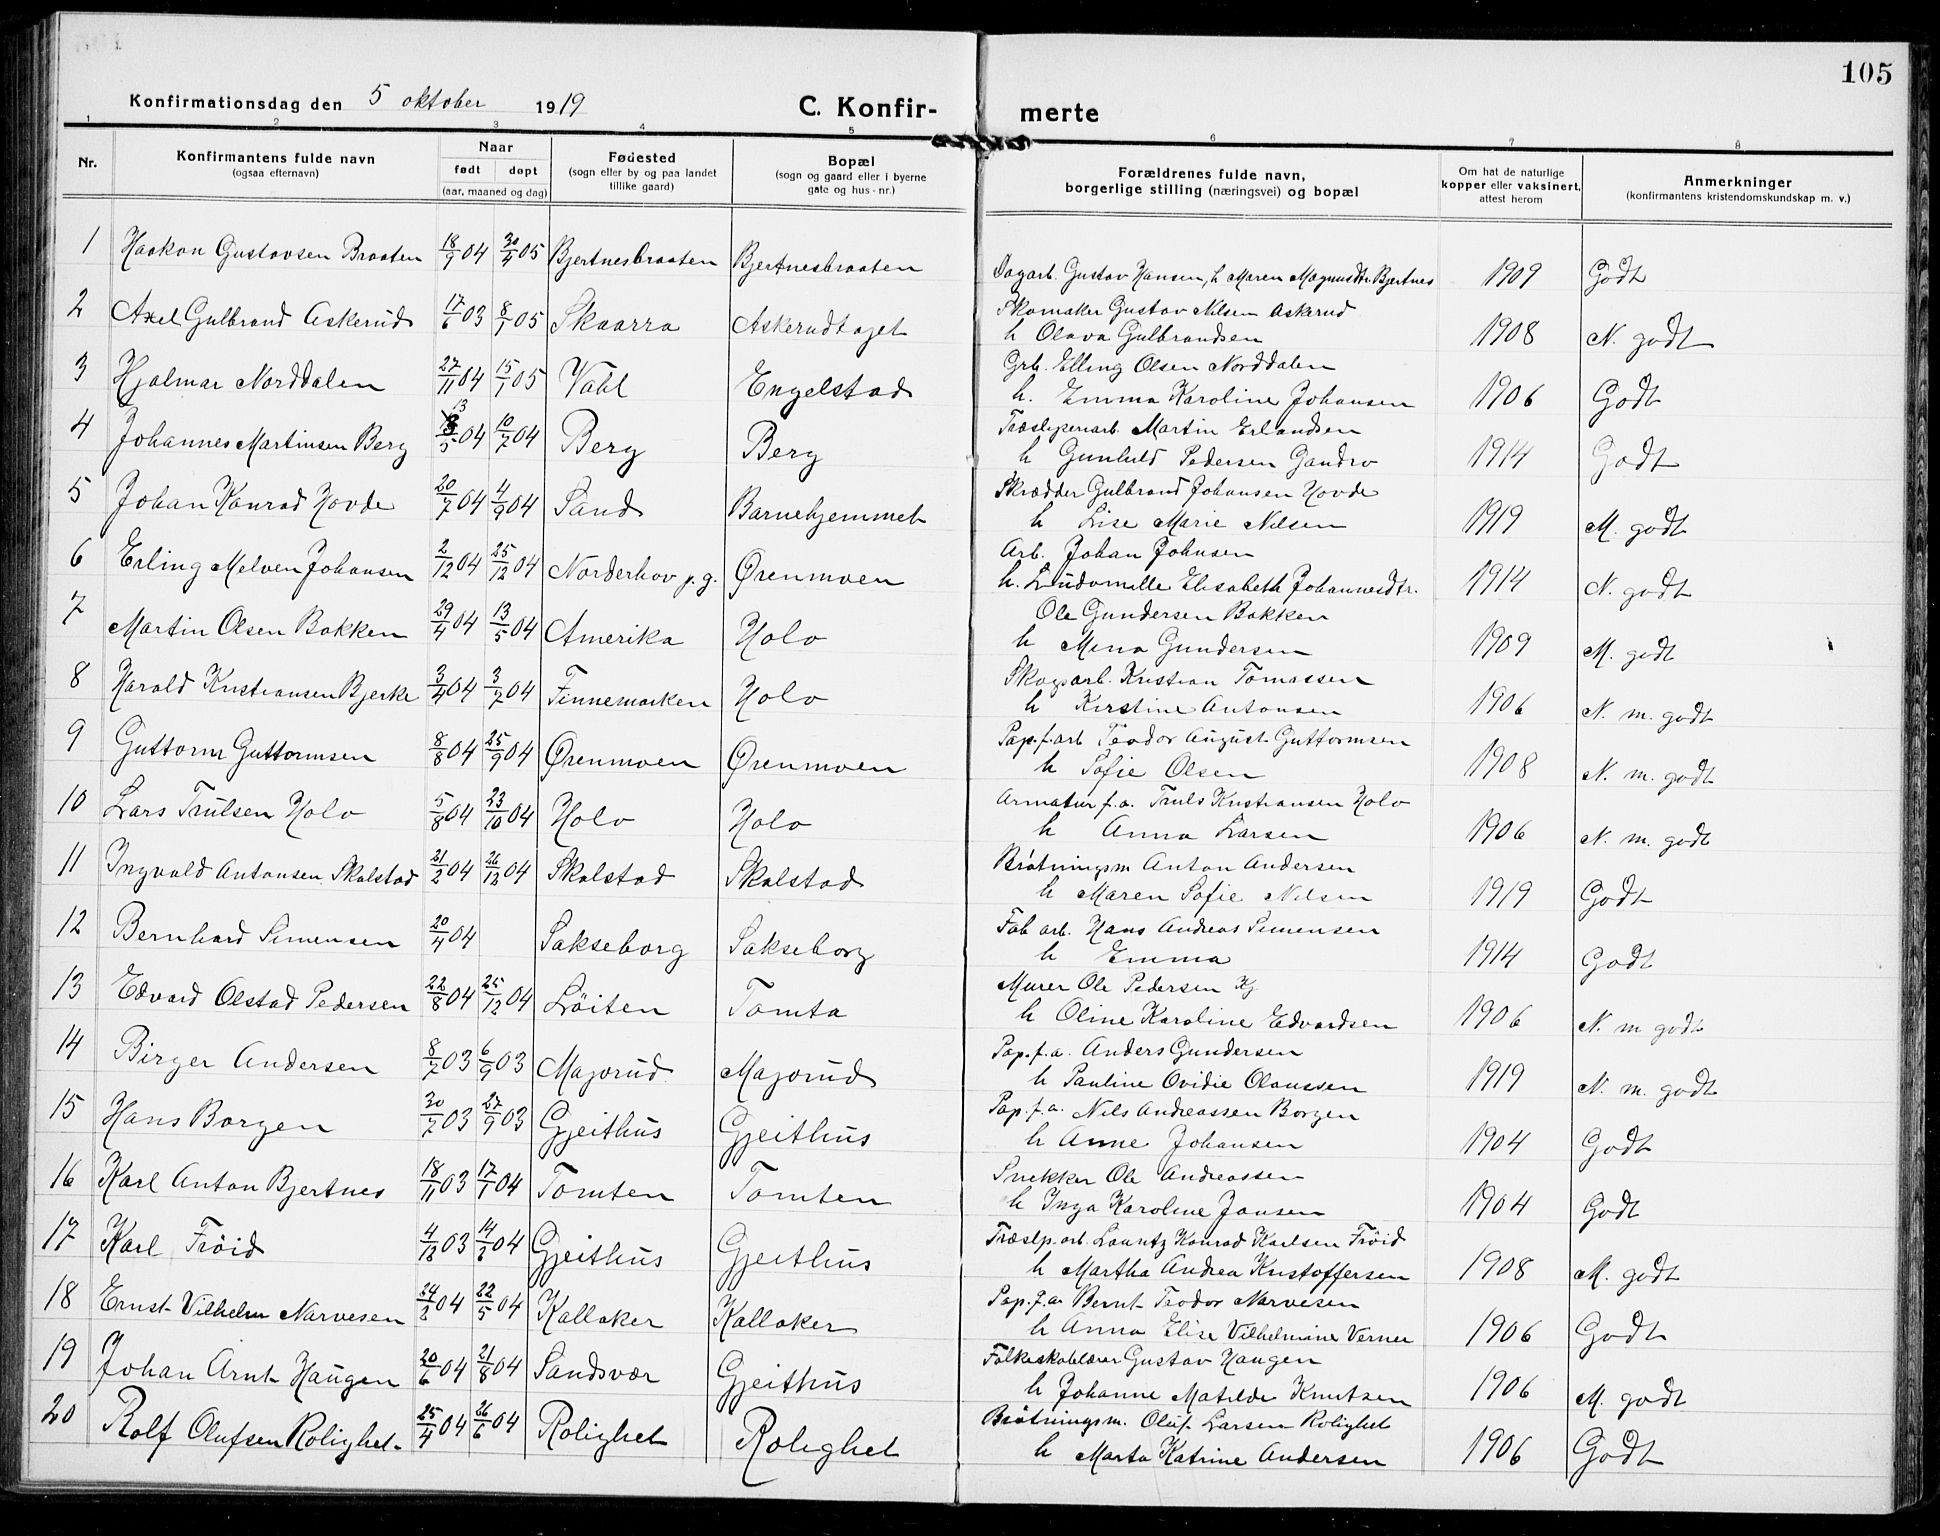 105
Konfirmationsdag den 5 oktober 1919 C. Konfir- merte
1 2 3 4 5 6 7 8
Nr.
Konfirmantens fulde navn
(ogsaa efternavn)
Naar
født døpt
(aar, maaned og dag)
Fødested
(sogn eller by og paa landet
tillike gaard)
Bopæl
(sogn og gaard eller i byerne
gate og hus-nr.)
Forældrenes fulde navn,
borgerlige stilling (næringsvei) og bopæl
Om hat de naturlige
kopper eller vaksinert,
attest herom
Anmerkninger
(konfirmantens kristendomskundskap m. v.)
1 Haakon Gustavsen Braaten 18/9 04 30/4 05 Bjertnesbraaten Bjertnesbraaten Dagarb. Gustav Hansen, h Maren Magnusdtr. Bjertnes 1909 Godt
2 Axel Gulbrand Askerud 17/6 03 8/1 05 Skaarra Askerudtaget Skomaker Gustav Nilsen Askerud
h Olava Gulbrandsen 1908 N. godt
3 Hjalmar Norddalen 27/11 04 15/1 05 Vahl Engelstad Grb. Elling Olsen Norddalen
h. Emma Karoline Johansen 1906 Godt
4 Johannes Martinsen Berg 13/5 04 10/7 04 Berg Berg Træsliperiarb. Martin Erlandsen
h Gunhild Pedersen Gandro 1914 Godt
5 Johan Konrad Hovde 20/7 04 4/9 04 Sand Barnehjemmet Skrædder Gulbrand Johansen Hovde
h Lise Marie Nilsen 1919 M. godt
6 Erling Melven Johansen 2/12 04 25/12 04 Norderhov p.g. Ørenmoen Arb. Johan Johnsen
h. Ludomille Elisabeth Johannesdtr. 1914 N. godt
7 Martin Olsen Bakken 29/4 04 13/5 04 Amerika Holo Ole Gundersen Bakken
h Mina Gundersen 1909 M. godt
8 Harald Kristiansen Bjerke 3/4 04 3/7 04 Finnemarken Holo Skogsarb. Kristian Tomassen
h Kirstine Antonsen 1906 N. m. godt
9 Guttorm Guttormsen 8/8 04 25/9 04 Ørenmoen Ørenmoen Pap. f. arb Teodor August Guttormsen
h Sofie Olsen 1908 N. m. godt
10 Lars Trulsen Holo 5/8 04 23/10 04 Holo Holo Armatur f.a. Truls Kristiansen Holo
h Anna Larsen 1906 N. m. godt
11 Ingvald Antonsen Skalstad 21/2 04 26/12 04 Skalstad Skalstad Brøtningsm Anton Andersen
h Maren Sofie Nilsen 1919 Godt
12 Bernhard Simensen 20/4 04 Sakseborg Sakseborg Fab arb. Hans Andreas Simensen
h Emma 1914 Godt
13 Edvard Olstad Pedersen 22/8 04 25/12 04 Löiten Tomta Murer Ole Pedersen
h Oline Karoline Edvardsen 1906 N. m godt
14 Birger Andersen 8/7 03 6/9 03 Majorud Majorud Pap. f. a. Anders Gundersen
h Pauline Ovidie Olaussen 1919 N. m. godt
15 Hans Borgen 30/7 03 27/9 03 Gjeithus Gjeithus Pap. f. a. Nils Andreassen Borgen
h Anne Johansen 1904 Godt
16 Karl Anton Bjertnes 18/11 03 17/1 04 Tomten Tomten Snekker Ole Andreassen
h Inga Karoline Jansen 1904 Godt
17 Karl Fröid 4/12 03 14/2 04 Gjeithus Gjeithus Træslp. arb. Lauritz Konrad Karlsen Fröid
h Martha Andrea Kristoffersen 1908 M. godt
18 Ernst Vilhelm Narvesen 24/2 04 22/5 04 Kalloker Kalloker Pap. f. a. Bernt Teodor Narvesen
h Anna Elise Vilhelmine Verner 1906 Godt
19 Johan Arnt Haugen 20/6 04 21/8 04 Sandsvær Gjeithus Folkeskolelærer Gustav Haugen
h Johanne Matilde Knutsen 1906 M. godt
20 Rolf Olufsen Rolighet 25/4 04 26/6 04 Rolighet Rolighet Brøtningsm. Oluf Larsen Rolighet
h Marta Katrine Andersen 1906 Godt